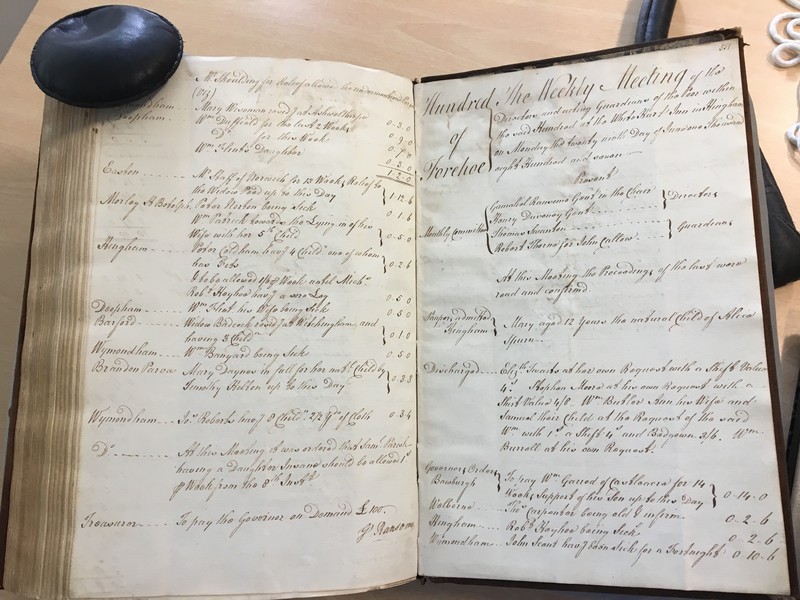 Mr. Shoulding for Relief allowed the undermentioned
Mary Wiseman resid.g at Ashwelthorpe 0..3..0
Wm. Duffield for the last 2 Weeks 0..9..0
Do. for this Week
Wm. Flints Daughter
1..2..0
Easton Mr. Staff of Norwich for 13 Weeks Relief to
the Widow Pod up to this Day 1..12..6
Morley St. Botolph Peter Norton being Sick 0..1..6
Wm. Parrick towards the Lying in of his
Wife with her 5th Child 0..5..0
Hingham Peter Coldham hav.g 4 Child.n one of whom
has Fits 0..2..6
to be allowed 1/ ⅌ Week until Mich.s
Robt. Hayhoe hav.g a sore Leg 0..5..0
Deopham Wm. Flint his Wife being Sick 0..5..0
Barford Widow Badcock resid.g at Witchingham and
having 3 Child.n 0..1..0
Wymondham Wm. Banyard being Sick 0..5..0
Brandon Parva Mary Daynes in full for her nat.l Child by
Timothy Helsen up to this Day 0..3..3
Wymondham Jo. Roberts hav.g 8 Child.n 2½ Yds. of Cloth 0..3..4
Do. At this Meeting it was ordered that Saml. Parish
having a Daughter Insane should be allowed 1s
⅌ Week from the 8th Inst.
Treasurer To pay the Governor on Demand £100..
Gl. Ransome
Hundred of Forehoe
The Weekly Meeting of the
Directors and acting Guardians of the Poor within
the said Hundred at the White Hart Inn in Hingham
on Monday the twenty ninth Day of June one Thousand
eight Hundred and seven
Present
Monthly Committee
Gamaliel Ransome Gent. in the Chair
Henry Duvemay Gent. Directors
Thomas Swanton
Robert Thorne for John Callow Guardians
At this Meeting the Proceedings of the last were
read and confirmed.
Paupers admitted
Hingham Mary aged 12 Years the natural Child of Alice
Spurn
Discharged Elizth. Swarts at her own Request with a Shift Value
4s. Stephen Moore at his own Request with a
Shirt Value 4/8. Wm. Butler Ann his Wife and
Samuel their Child at the Request of the said
Wm. with 1s. a Shift 4s and Bedgown 3/6. Wm.
Burrell at his own Request.
Governors Orders
Bawburgh To pay Wm. Garrod of Castleacre for 14
Weeks Support of his Son up to this Day 0..14..0
Welborne Thos. Carpenter being old & infirm 0..2..6
Hingham Robt. Hayhoe being Sick 0..2..6
Wymondham John Scout hav.g been Sick for a Fortnight 0..10..6